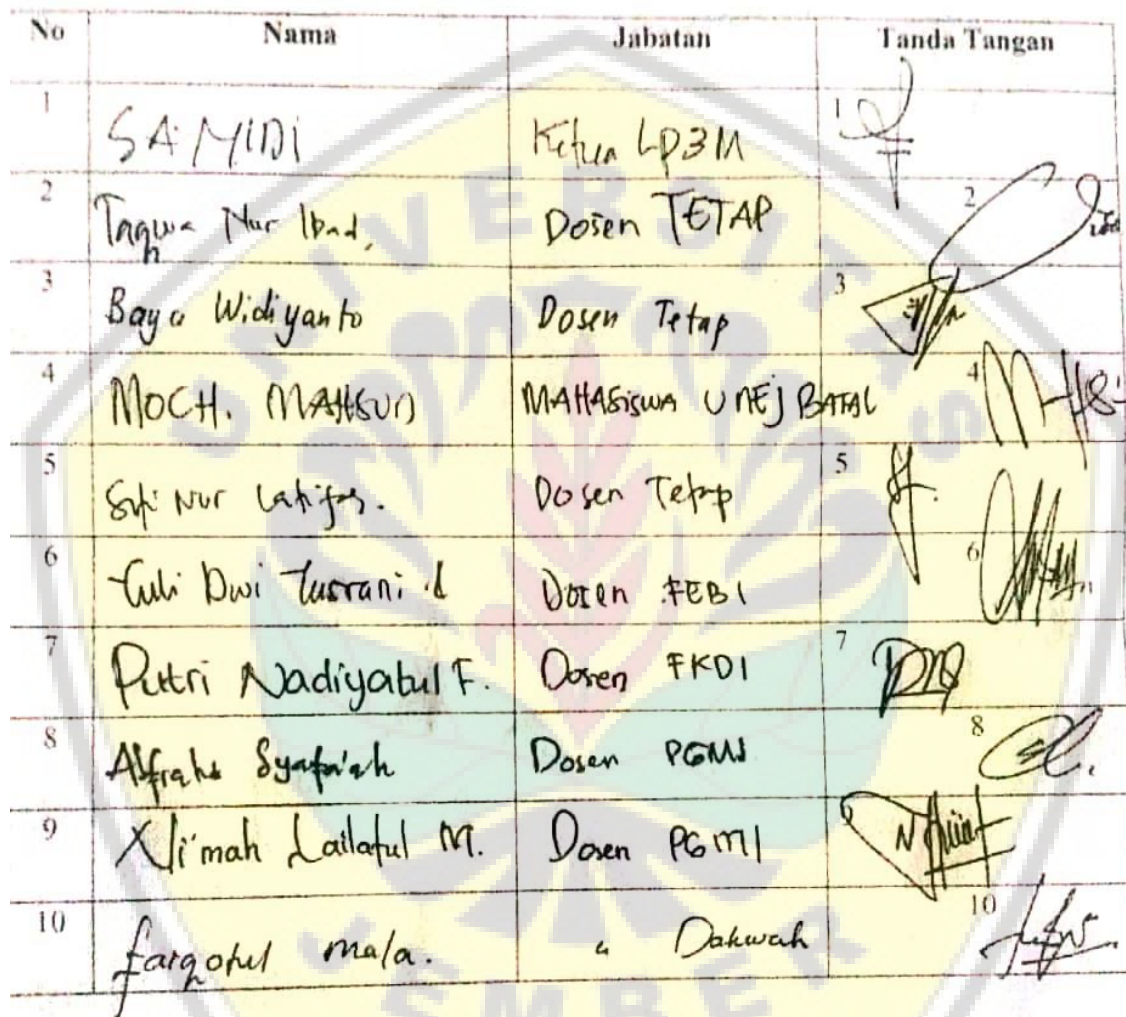 No Nama Jabatan Tanda Tangan
1 SAMIDI Ketua LP3M 1
2 Taqwa Nur Ibad, Dosen TETAP 2
3 Bayu Widiyanto Dosen Tetap 3
4 MOCH. MAHSUN MAHASISWA UNEJ BATAL 4
5 Siti Nur Latifah. Dosen Tetap 5
6 Yuli Dwi Yusrani Dosen FEBI 6
7 Putri Nadiyatul F. Dosen FKDI 7
8 Syafa'ah Dosen PGMI 8
9 Ni'mah Lailatul M. Dosen PGMI 9
10 farqotul mala. " Dakwah 10
UNIVERSITAS
JEMBER